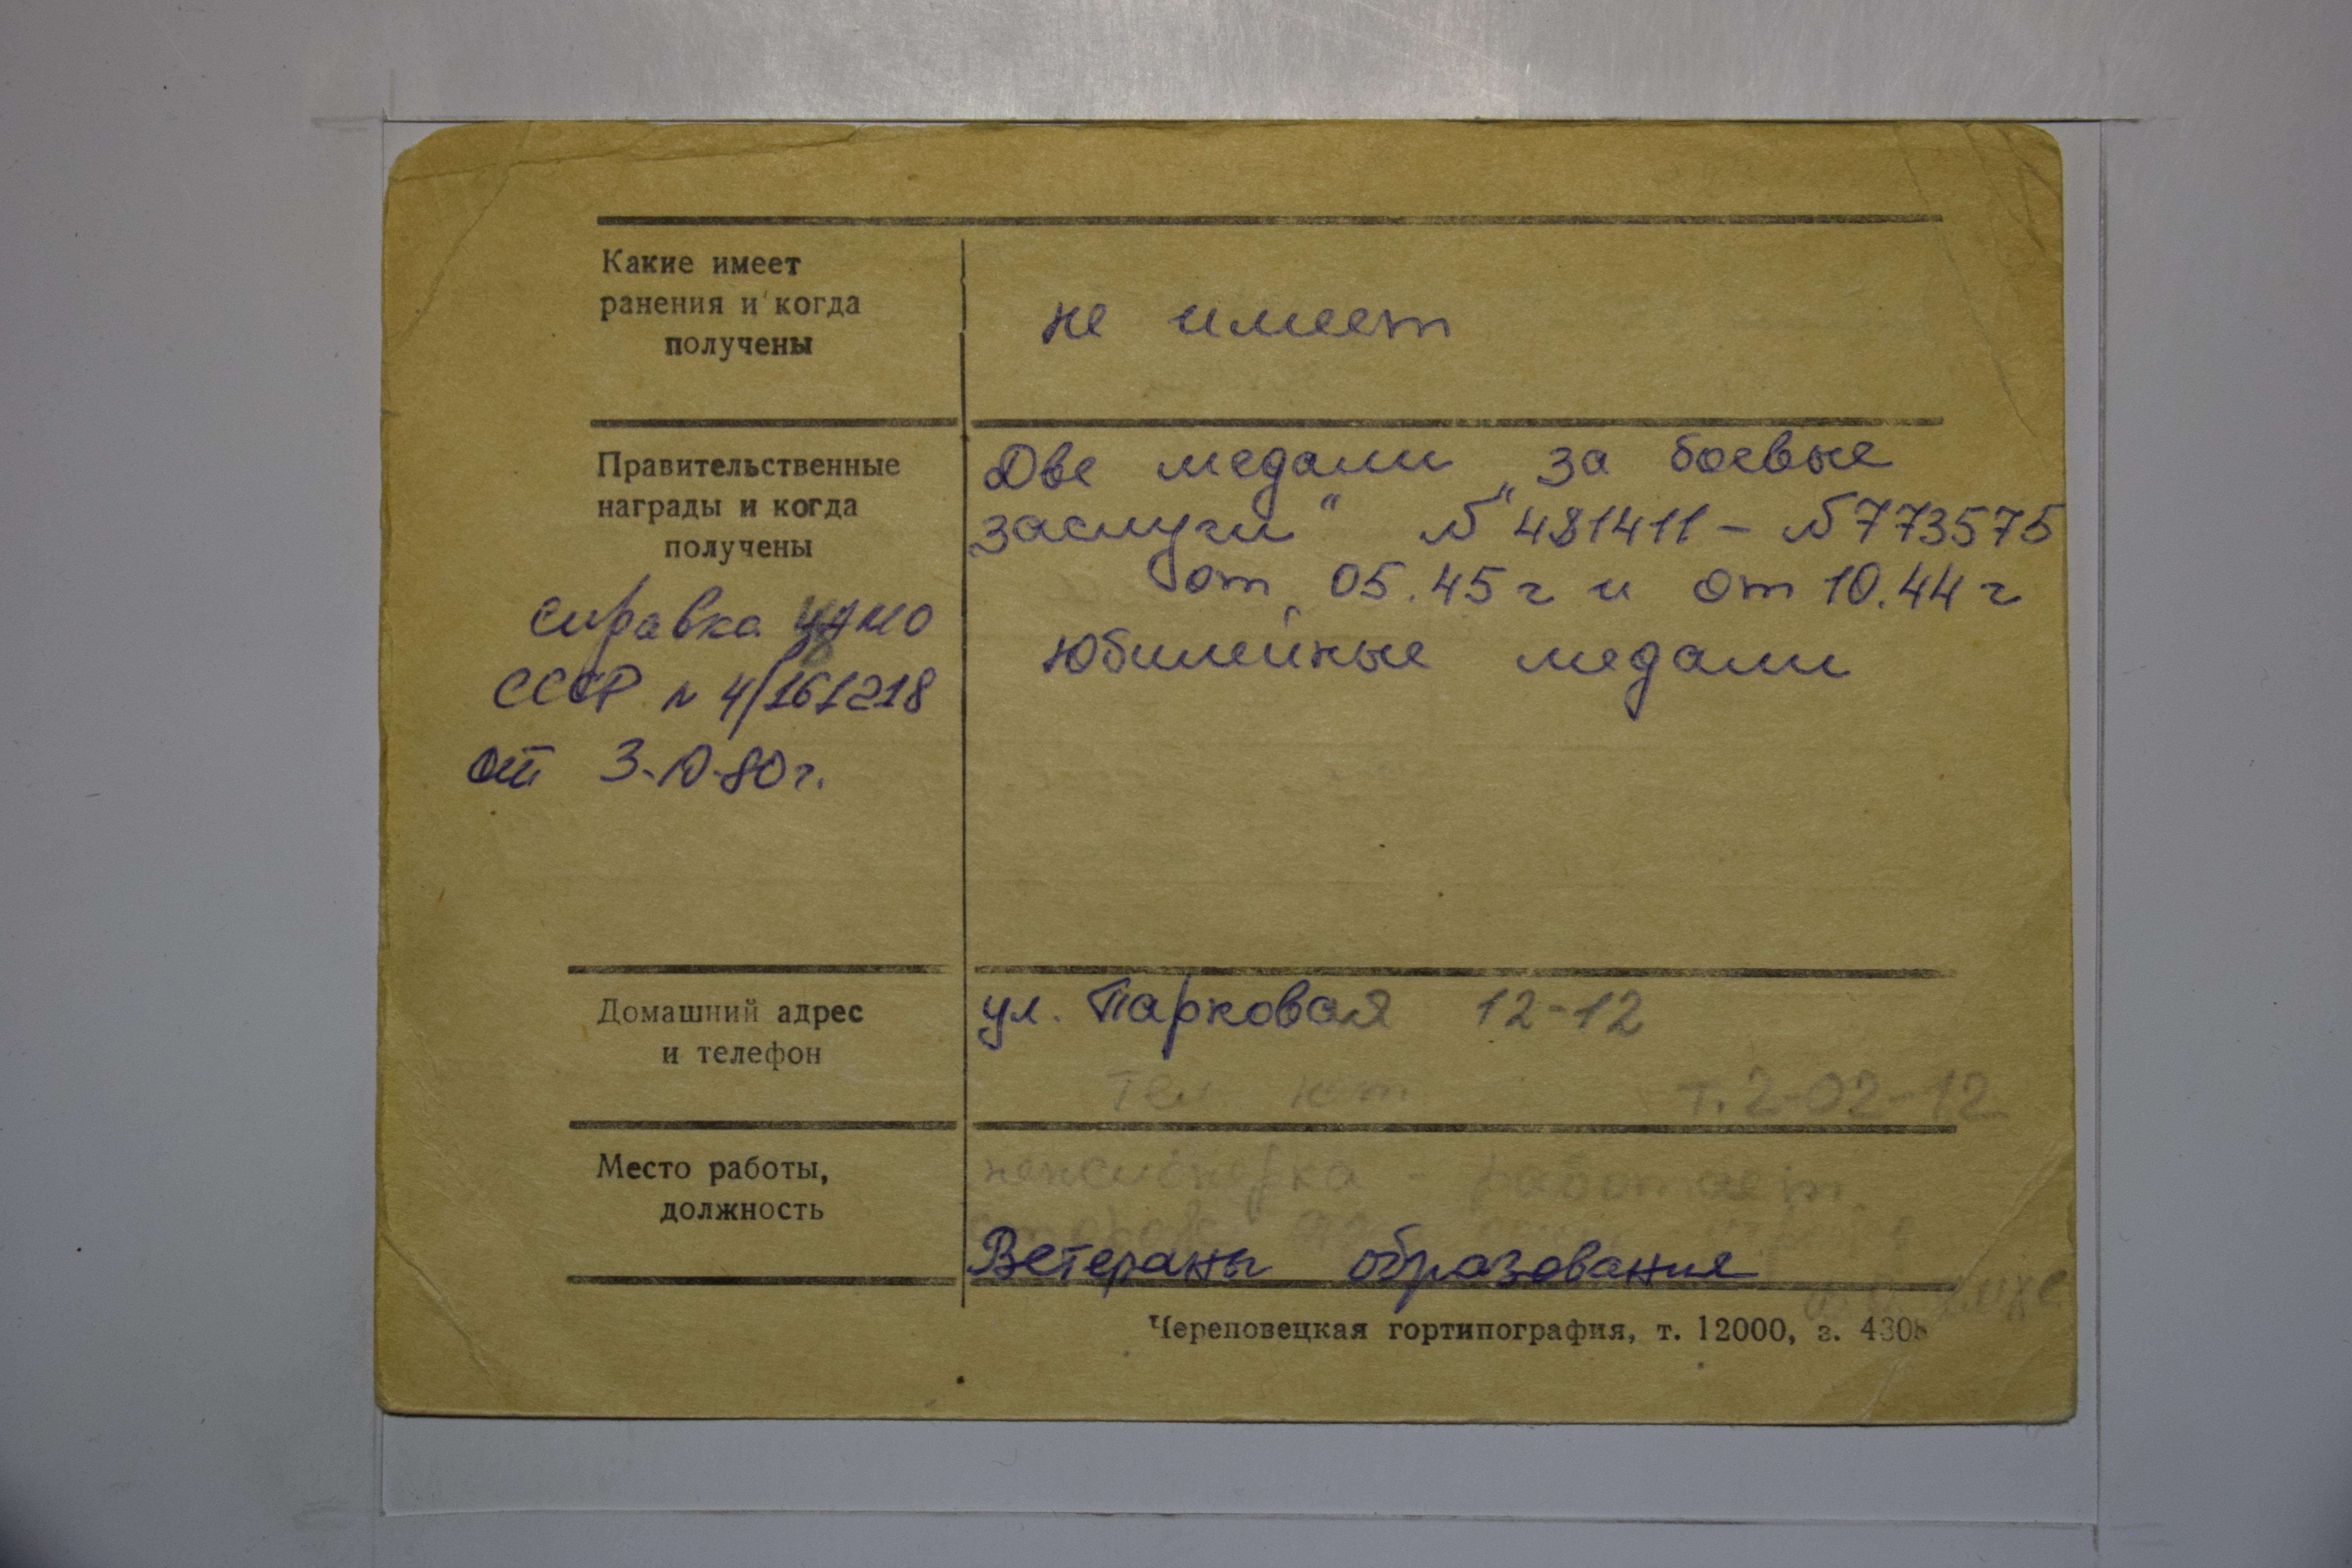 Какие имеет
ранения и когда
получены
не имеет
Правительственные
награды и когда
получены
Справка ЦАМО
СССР N 4/161218
от 3-10-80г.
Две медали „за боевые
заслуги" № 481411 - № 773575
от 05.45г и от 10.44г
юбилейные медали
Домашний адрес
и телефон
ул. Парковая 12-12
тел. т. 2-02-12
Место работы,
должность
пенсионерка - работает
Ветераны образования
Череповецкая гортипография, т. 12000, з. 4308